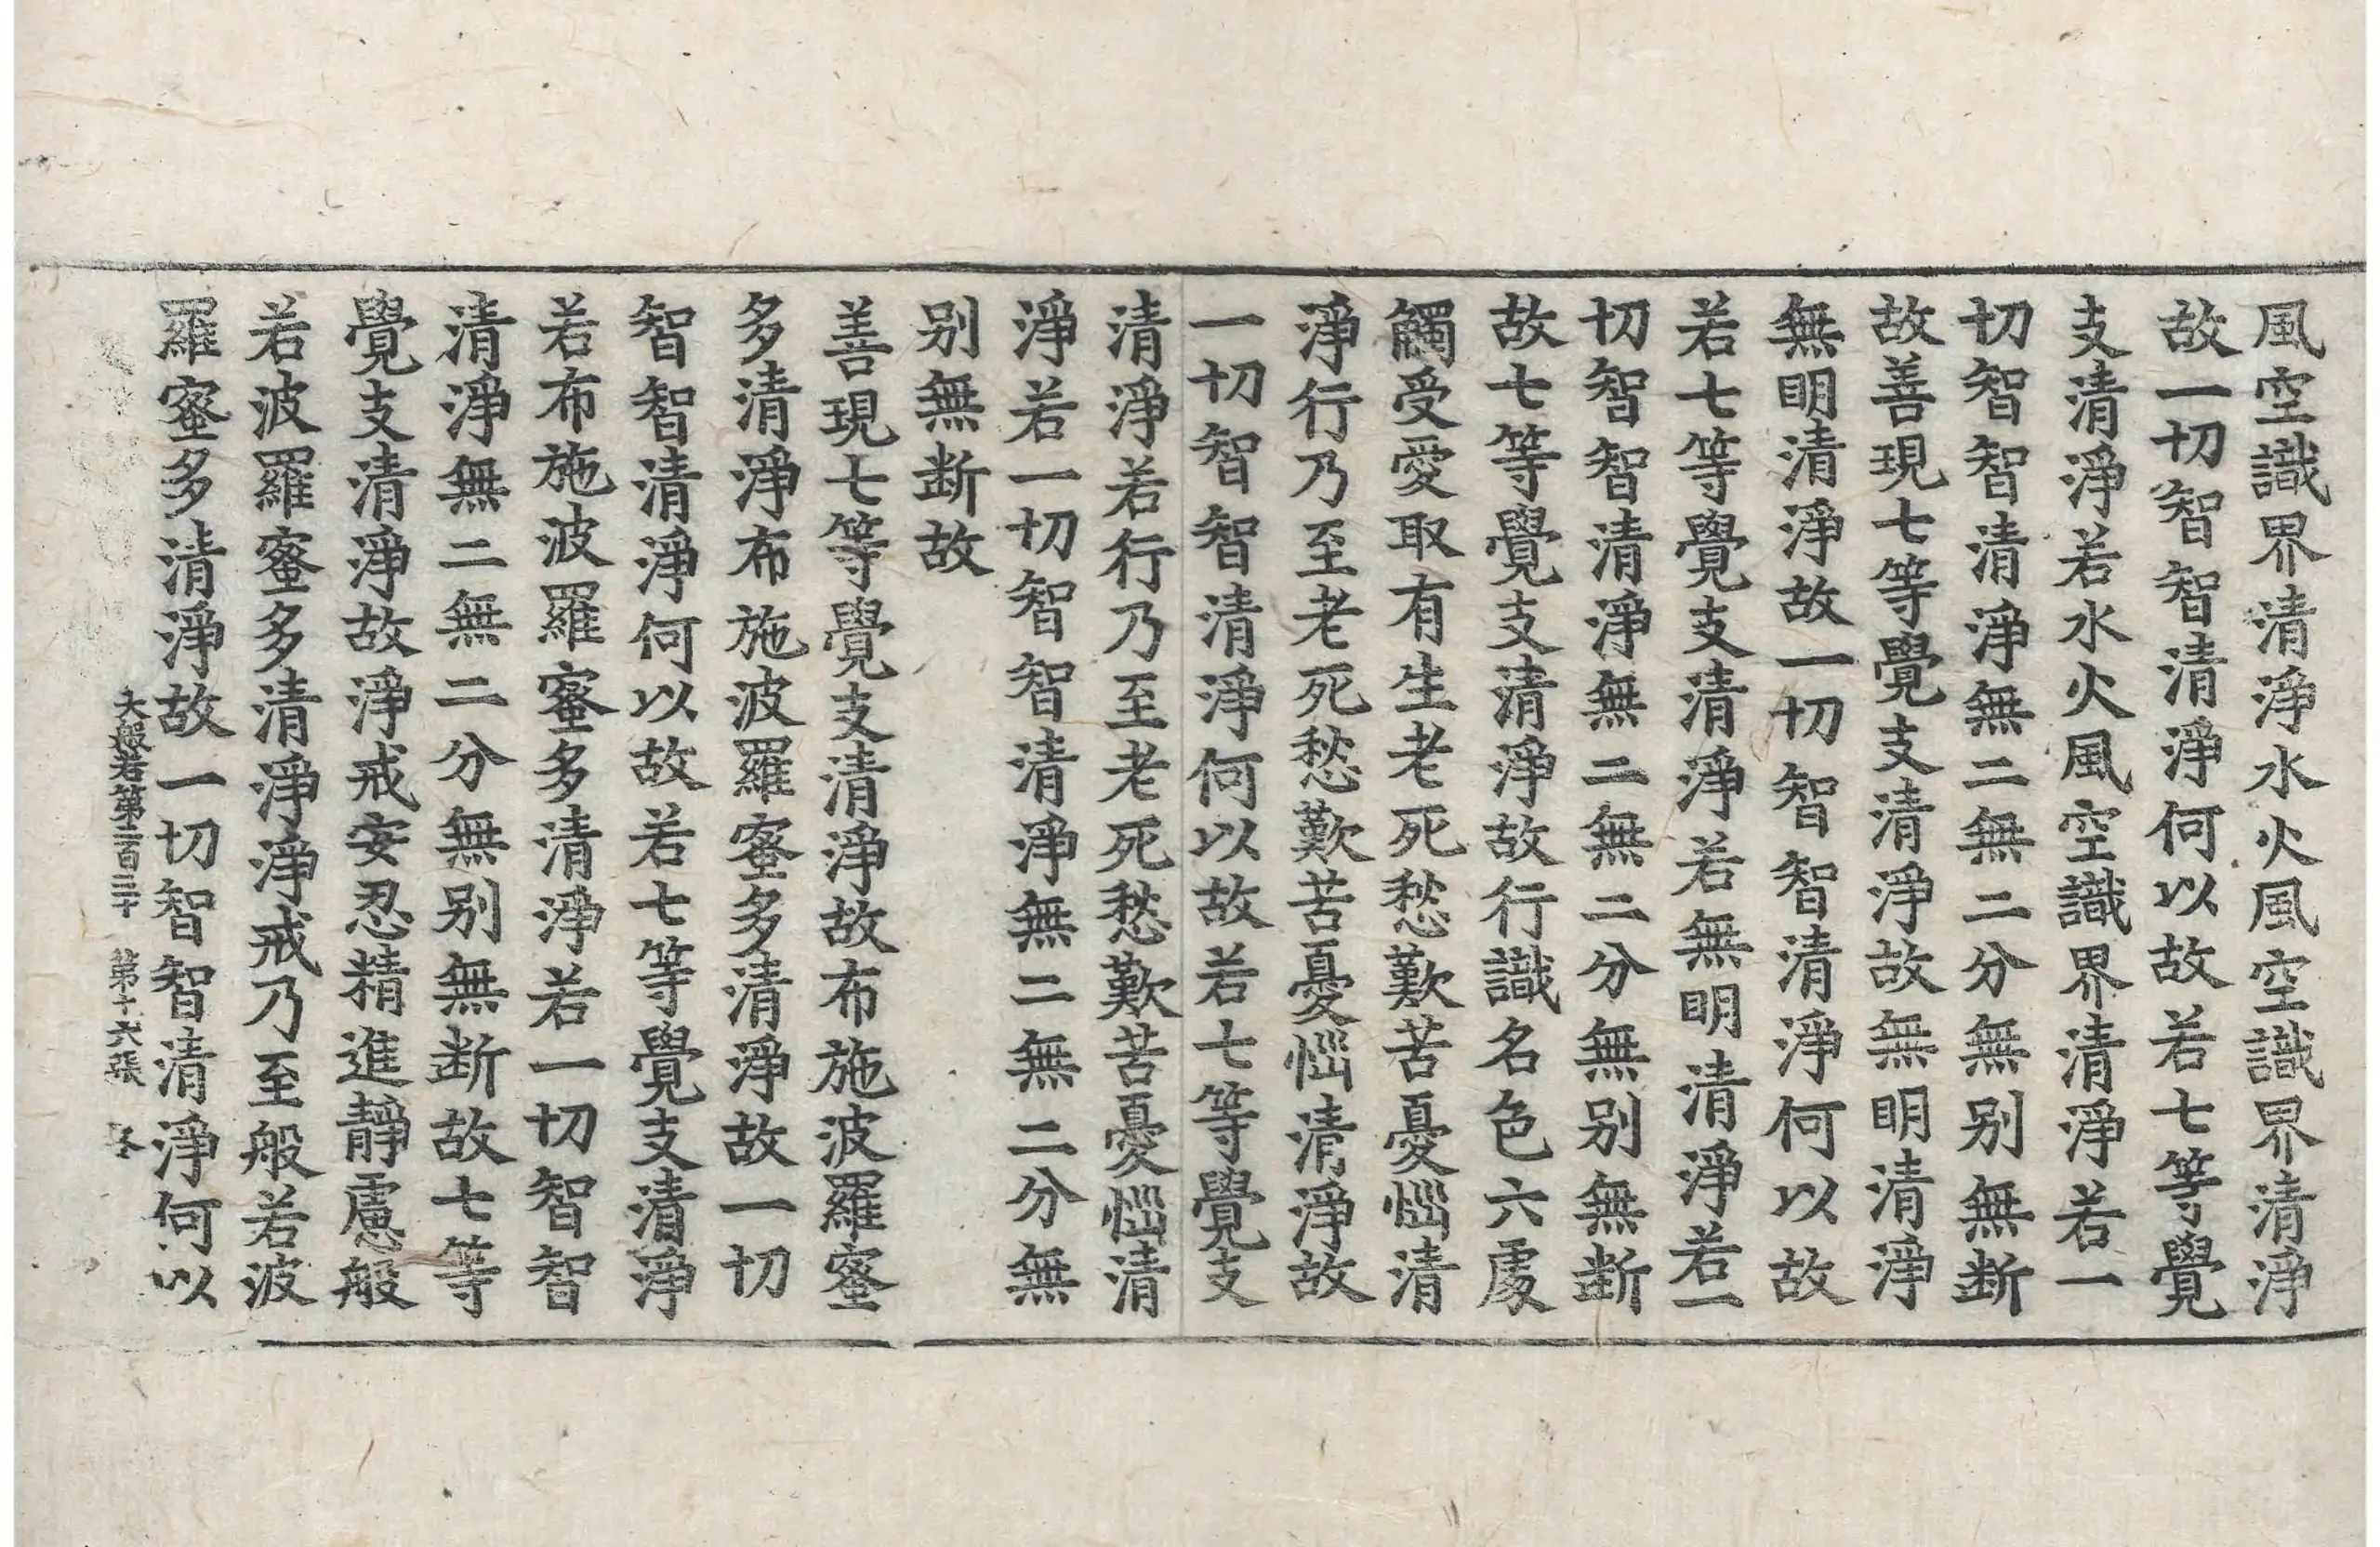 風空識界清淨水火風空識界清淨
故一切智智清淨何以故若七等覺
支清淨若水火風空識界清淨若一
切智智清淨無二無二分無別無断
故善現七等覺支清淨故無明清淨
無明清淨故一切智智清淨何以故
若七等覺支清淨若無明清淨若一
切智智清淨無二無二分無別無断
故七等覺支清淨故行識名色六處
觸受愛取有生老死愁歎苦憂惱清
淨行乃至老死愁歎苦憂惱清淨故
一切智智清淨何以故若七等覺支
清淨若行乃至老死愁歎苦憂惱清
淨若一切智智清淨無二無二分無
別無断故
善現七等覺支清淨故布施波羅蜜
多清淨布施波羅蜜多清淨故一切
智智清淨何以故若七等覺支清淨
若布施波羅蜜多清淨若一切智智
清淨無二無二分無別無断故七等
覺支清淨故淨戒安忍精進靜慮般
若波羅蜜多清淨淨戒乃至般若波
羅蜜多清淨故一切智智清淨何以
大般若第二百三十 第十六張 冬